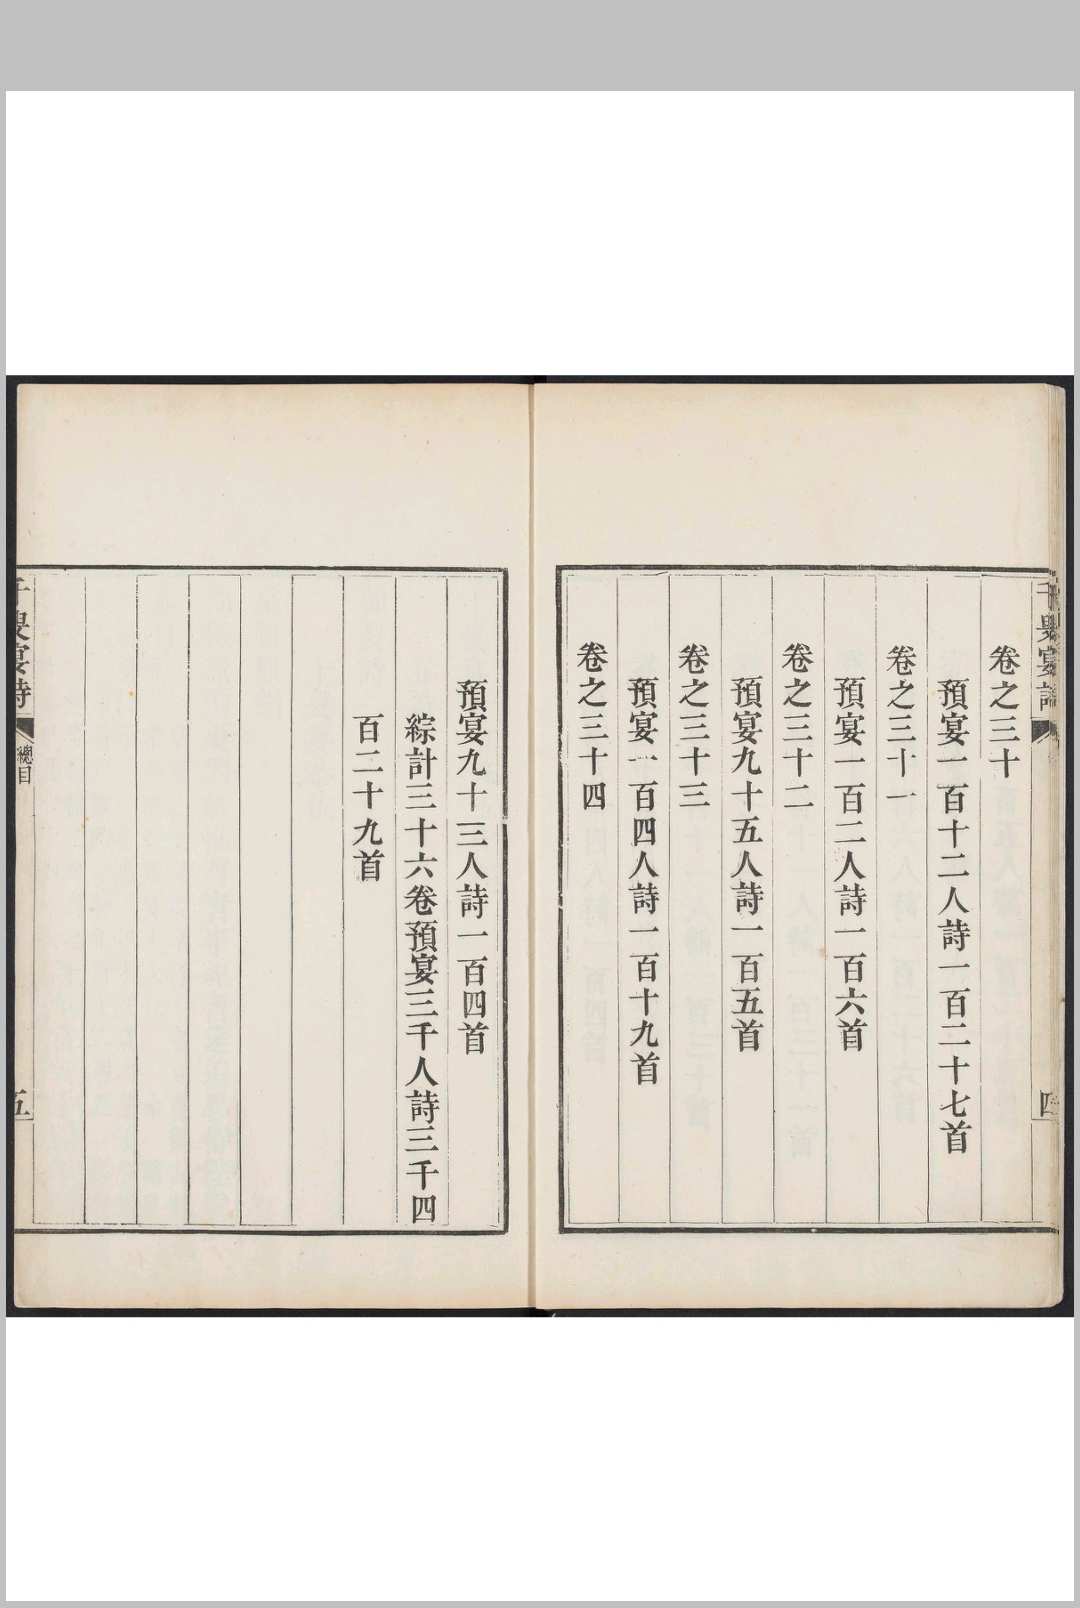 卷之三十
預宴一百十二人詩一百二十七首
卷之三十一
預宴一百二人詩一百六首
卷之三十二
預宴九十五人詩一百五首
卷之三十三
預宴一百四人詩一百十九首
卷之三十四
預宴九十三人詩一百四首
綜計三十六卷預宴三千人詩三千四
百二十九首
千叟宴詩
總目
五
千叟宴詩
四